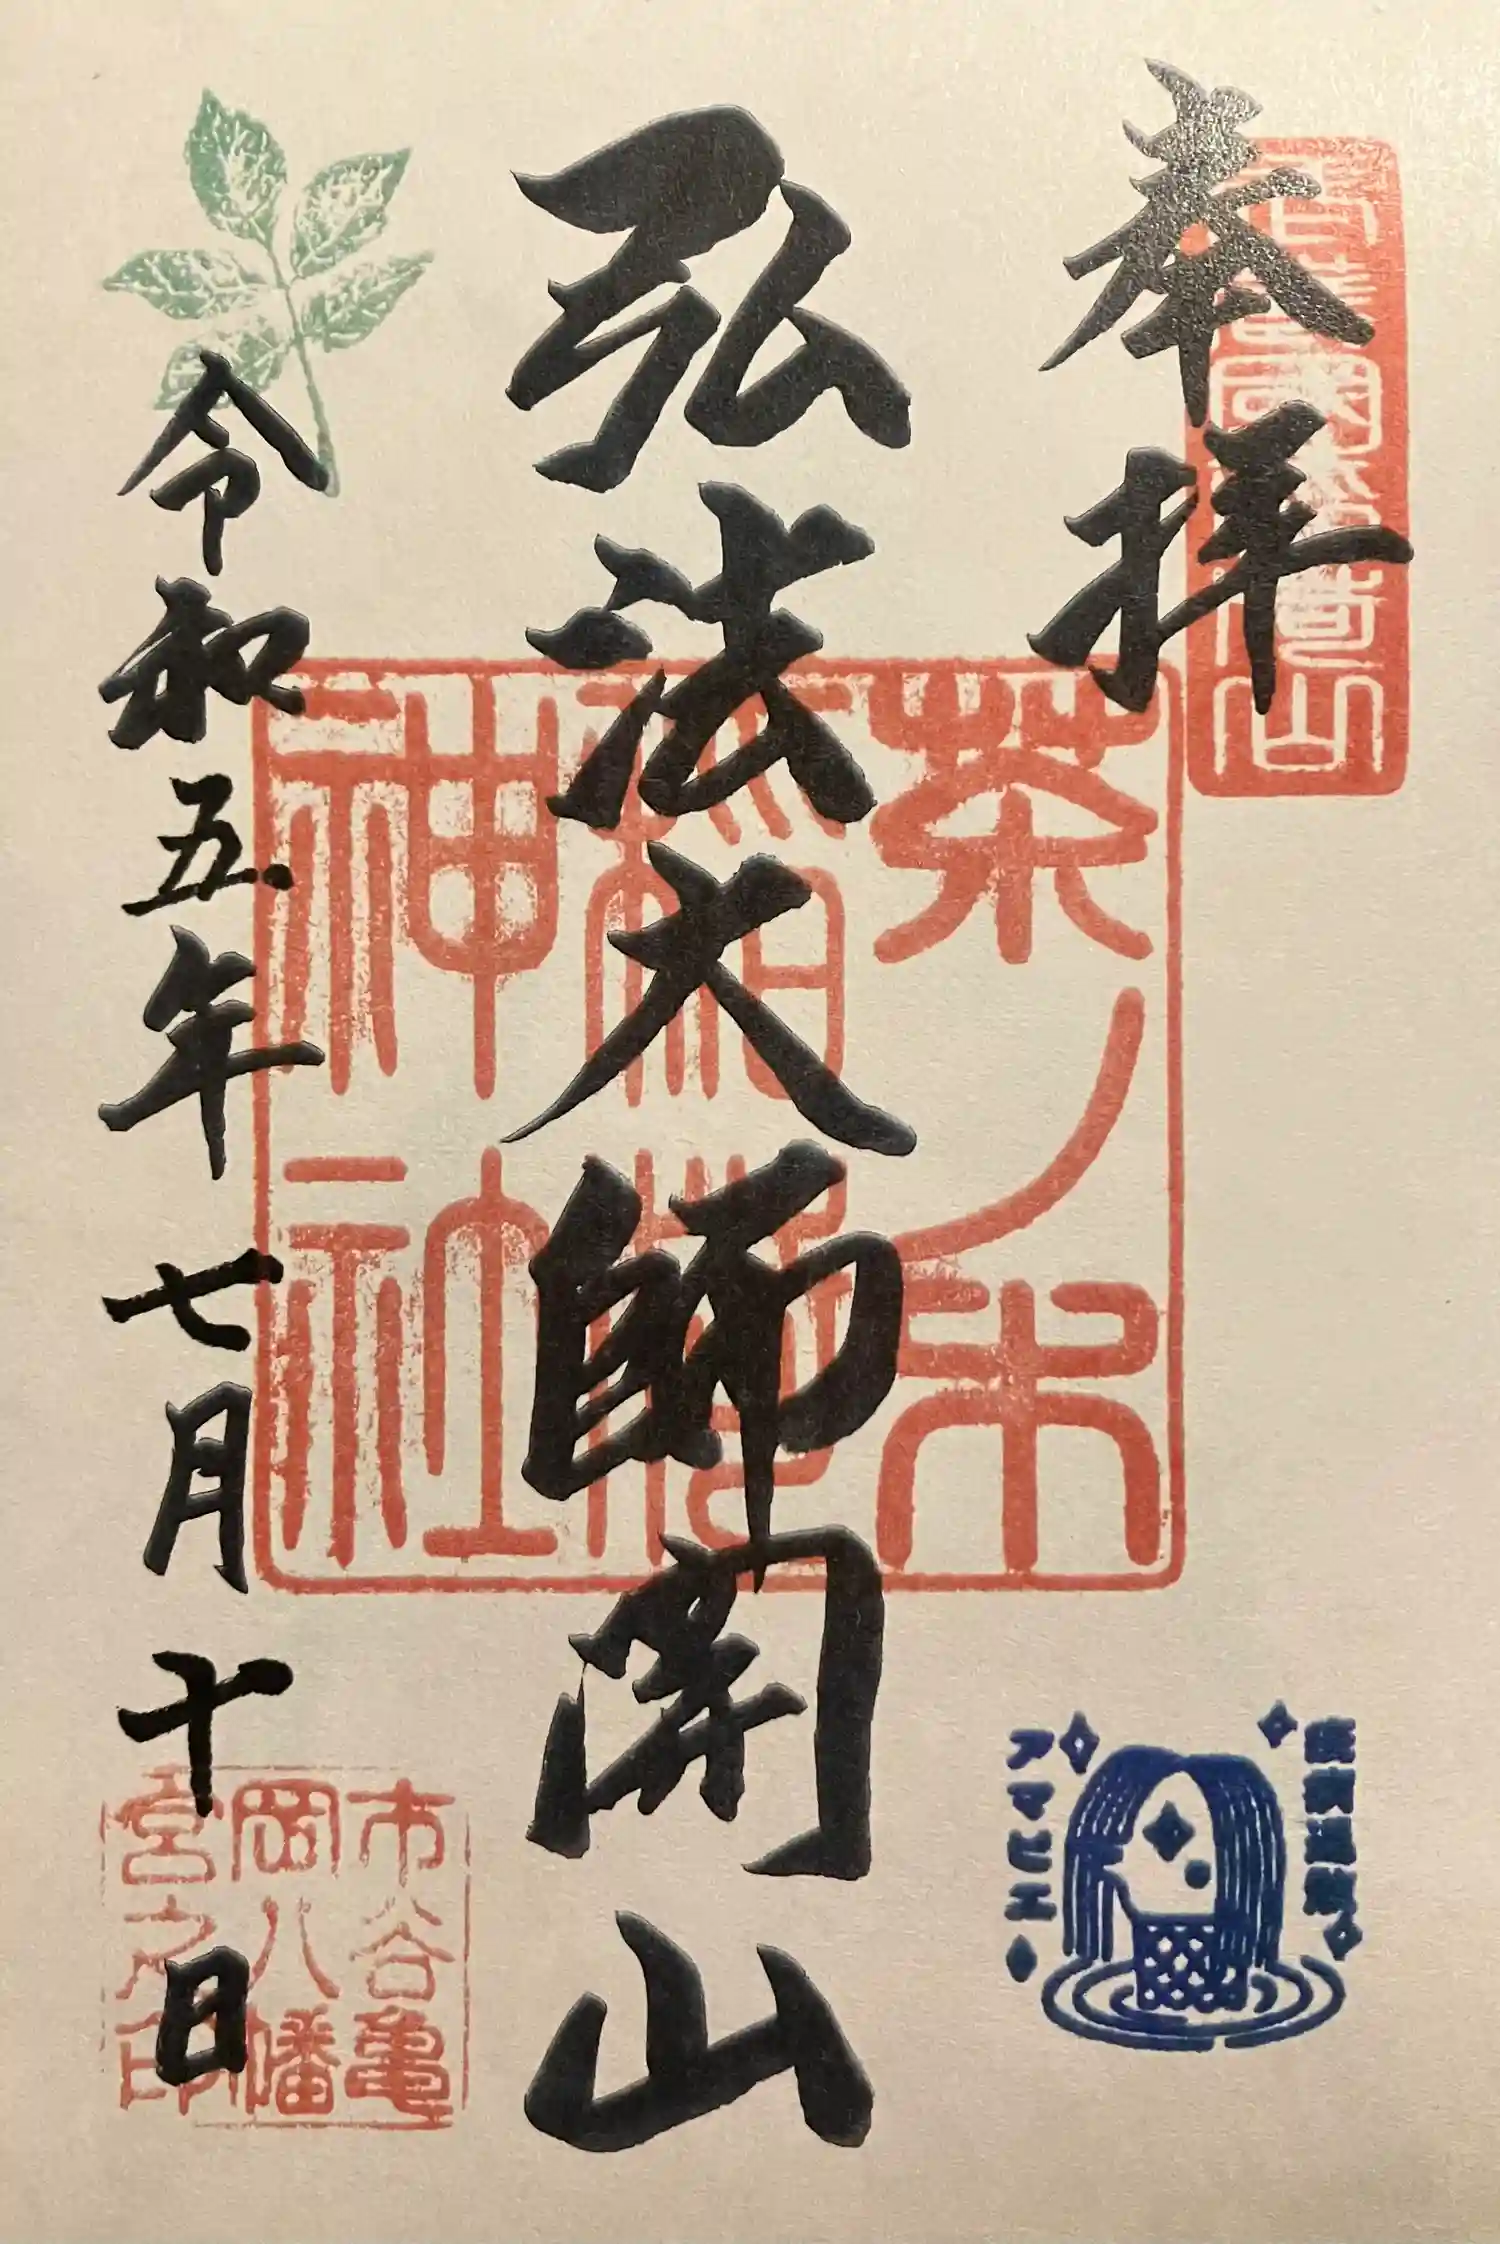 奉拝
弘法大師開山
茶ノ木
稲荷
神社
令和五年七月十日
市谷亀
岡八幡
宮之印
アマビエ